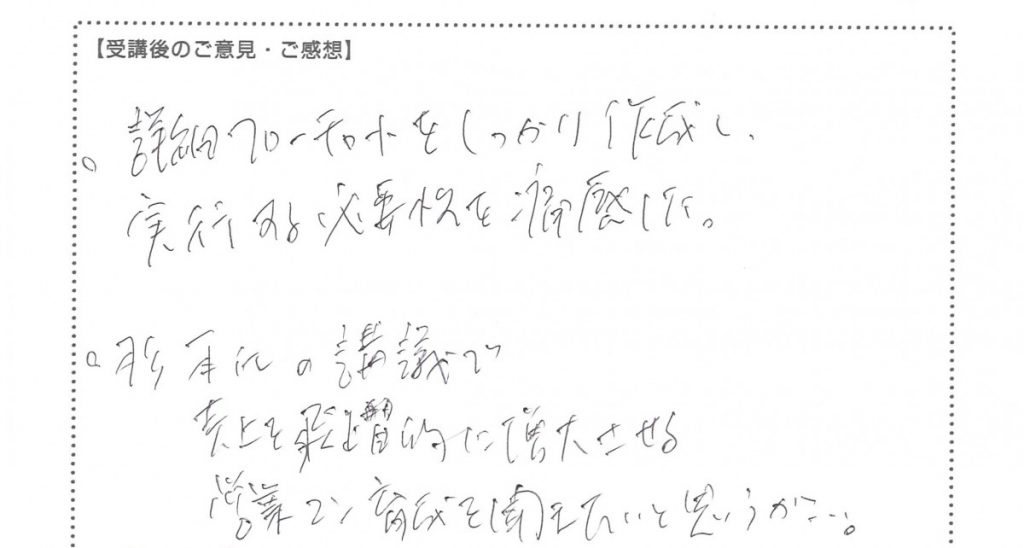 【受講後のご意見・ご感想】
○ 詳細フローチャートをしっかり作成し、
実行する必要性を痛感した。
○ の講議で
売上を飛躍的に増大させる
営業マン育成を聞きたいと思うが…。